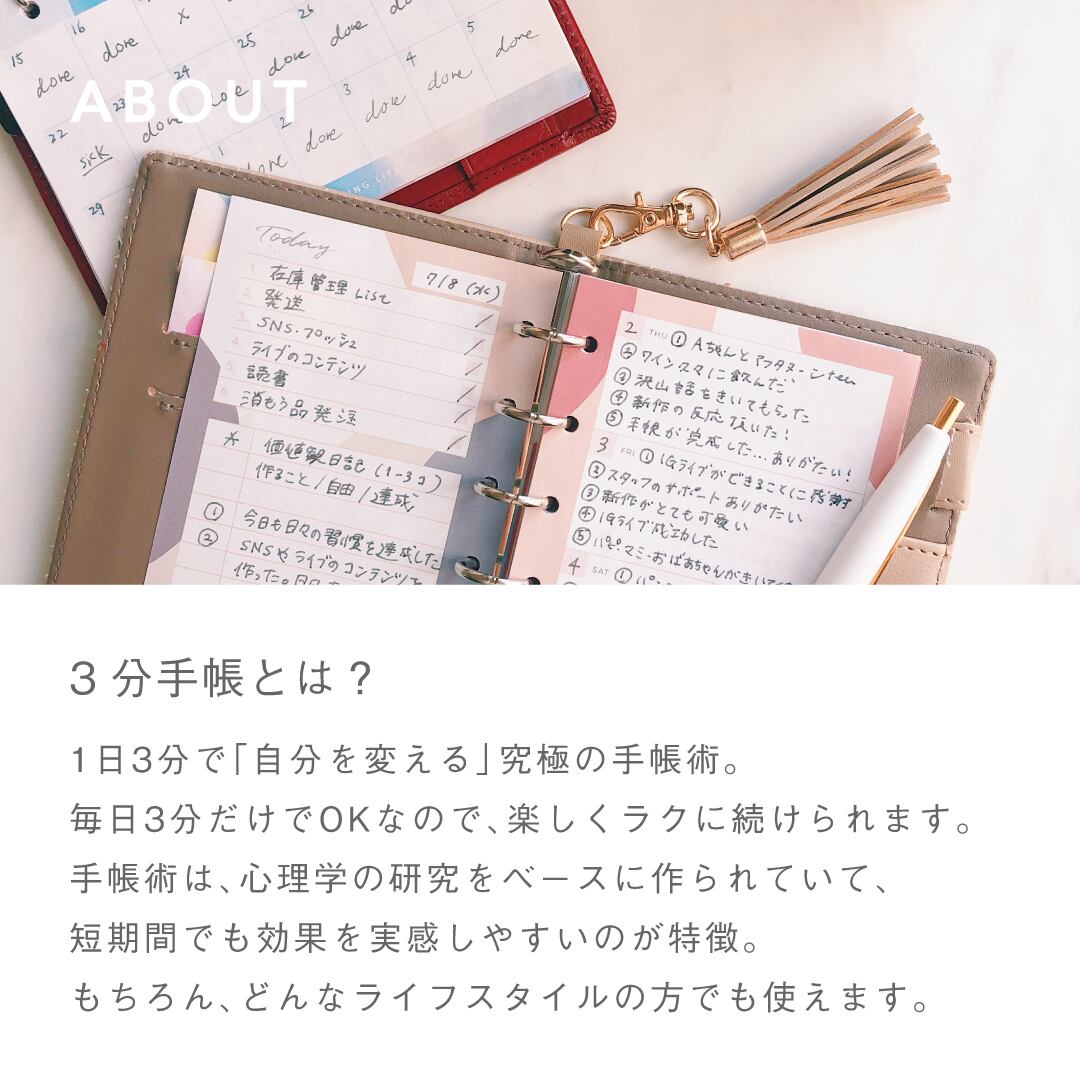 15 16 X 26
done done done done
ABOUT
22 23 24 25 3 4 5
sick done done done done done done
29 1 2
done done
ING LIFE
Today
7/8 (水)
1. 在庫管理 List
2. 発送
3. SNS・プッシュ
4. ライブのコンテンツ
5. 読書
6. 消もう品発注
* 価値観日記 (1-3コ)
作ること/自由/達成
① 今日も日々の習慣を達成した
② SNSやライブのコンテンツを
作った。
2 THU ① Aちゃんとアフタヌーンtea
② ワイン久々に飲んだ
③ 沢山話をきいてもらった
④ 新作の反応頂いた!
⑤ 手帳が完成した...ありがたい!
3 FRI ① IGライブができることに感謝
② スタッフのサポートありがたい
③ 新作がとても可愛い
④ IGライブ成功した
⑤ パピ・マミ・おばあちゃんがきいて
4 SAT ①
3分手帳とは?
1日3分で「自分を変える」究極の手帳術。
毎日3分だけでOKなので、楽しくラクに続けられます。
手帳術は、心理学の研究をベースに作られていて、
短期間でも効果を実感しやすいのが特徴。
もちろん、どんなライフスタイルの方でも使えます。